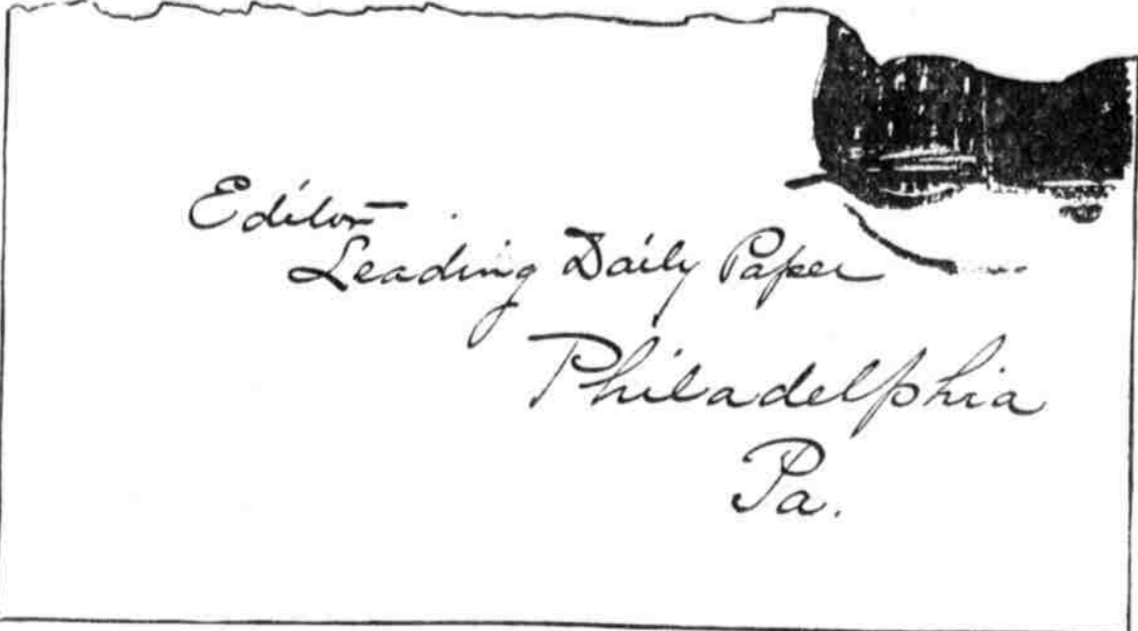 Editor
Leading Daily Paper
Philadelphia
Pa.